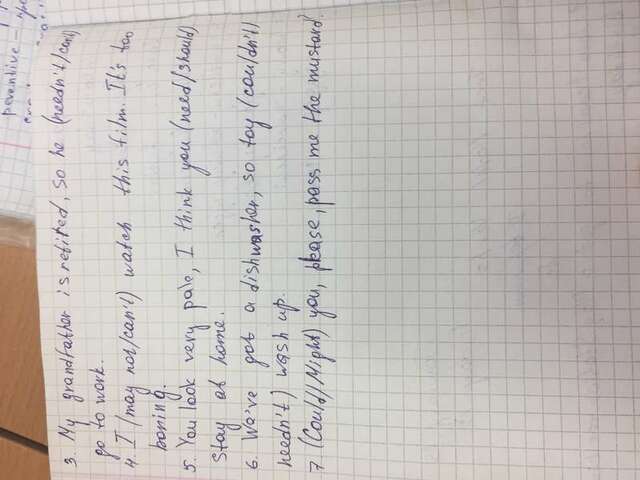 peventive –
3. My grandfather is retired, so he (needn't/can't)
go to work.
4. I (may not/can't) watch this film. It's too
boring.
5. You look very pale, I think you (need/should)
stay at home.
6. We've got a dishwasher, so toy (couldn't/
needn't) wash up.
7 (Could/Might) you, please, pass me the mustard?